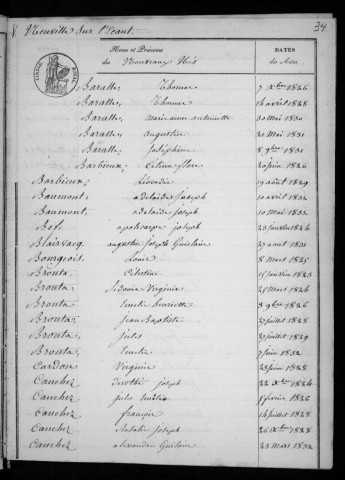 34
Neuville sur l'Escaut.
Noms et Prénoms
des Nouveaux Nés
DATES
des Actes.
Baralle, Thomas 7 Xbre 1826
Baralle, Thomas avril 1828
Baralle, Marie anne antoinette 30 mai 1830
Baralle, augustin 21 mai 1831
Baralle, Joséphine 8 9bre 1831
Barbieux, Célina flore juin 1826
Barbieux, Léocadie 19 août 1829
Baumont, adelaïde joseph 10 avril 1832
Baumont, adelaïde joseph 10 mai 1832
Bef, apolicarpe joseph 23 janvier 1824
Blairvacq, augustin joseph Guislain 27 août 1831
Bourgeois, Louis 8 mars 1825
Brouta, Célestine 15 janvier 1823
Brouta, Sidonie Virginie 25 mars 1824
Brouta, Emelie henriette 3 9bre 1826
Brouta, jean Baptiste 27 juillet 1828
Brouta, jules 27 juillet 1829
Brouta, Emelie 7 juin 1832
Cardon, Virginie 23 juin 1828
Cauchez, Timothé joseph 22 Xbre 1824
Cauchez, jules 5 février 1826
Cauchez, françois 14 juillet 1828
Cauchez, Natalie joseph 26 Xbre 1828
Cauchez, alexandre Guislain 23 mars 1832